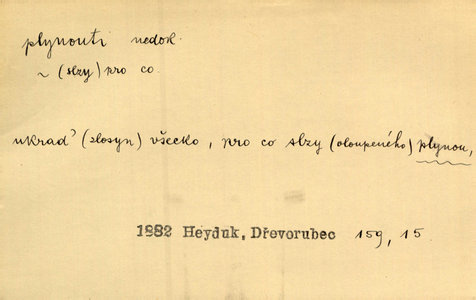 plynouti nedok.
~ (slzy) pro co.
ukrad' (zlosyn) všecko, pro co slzy (oloupeného) plynou,
1882 Heyduk, Dřevorubec 159, 15